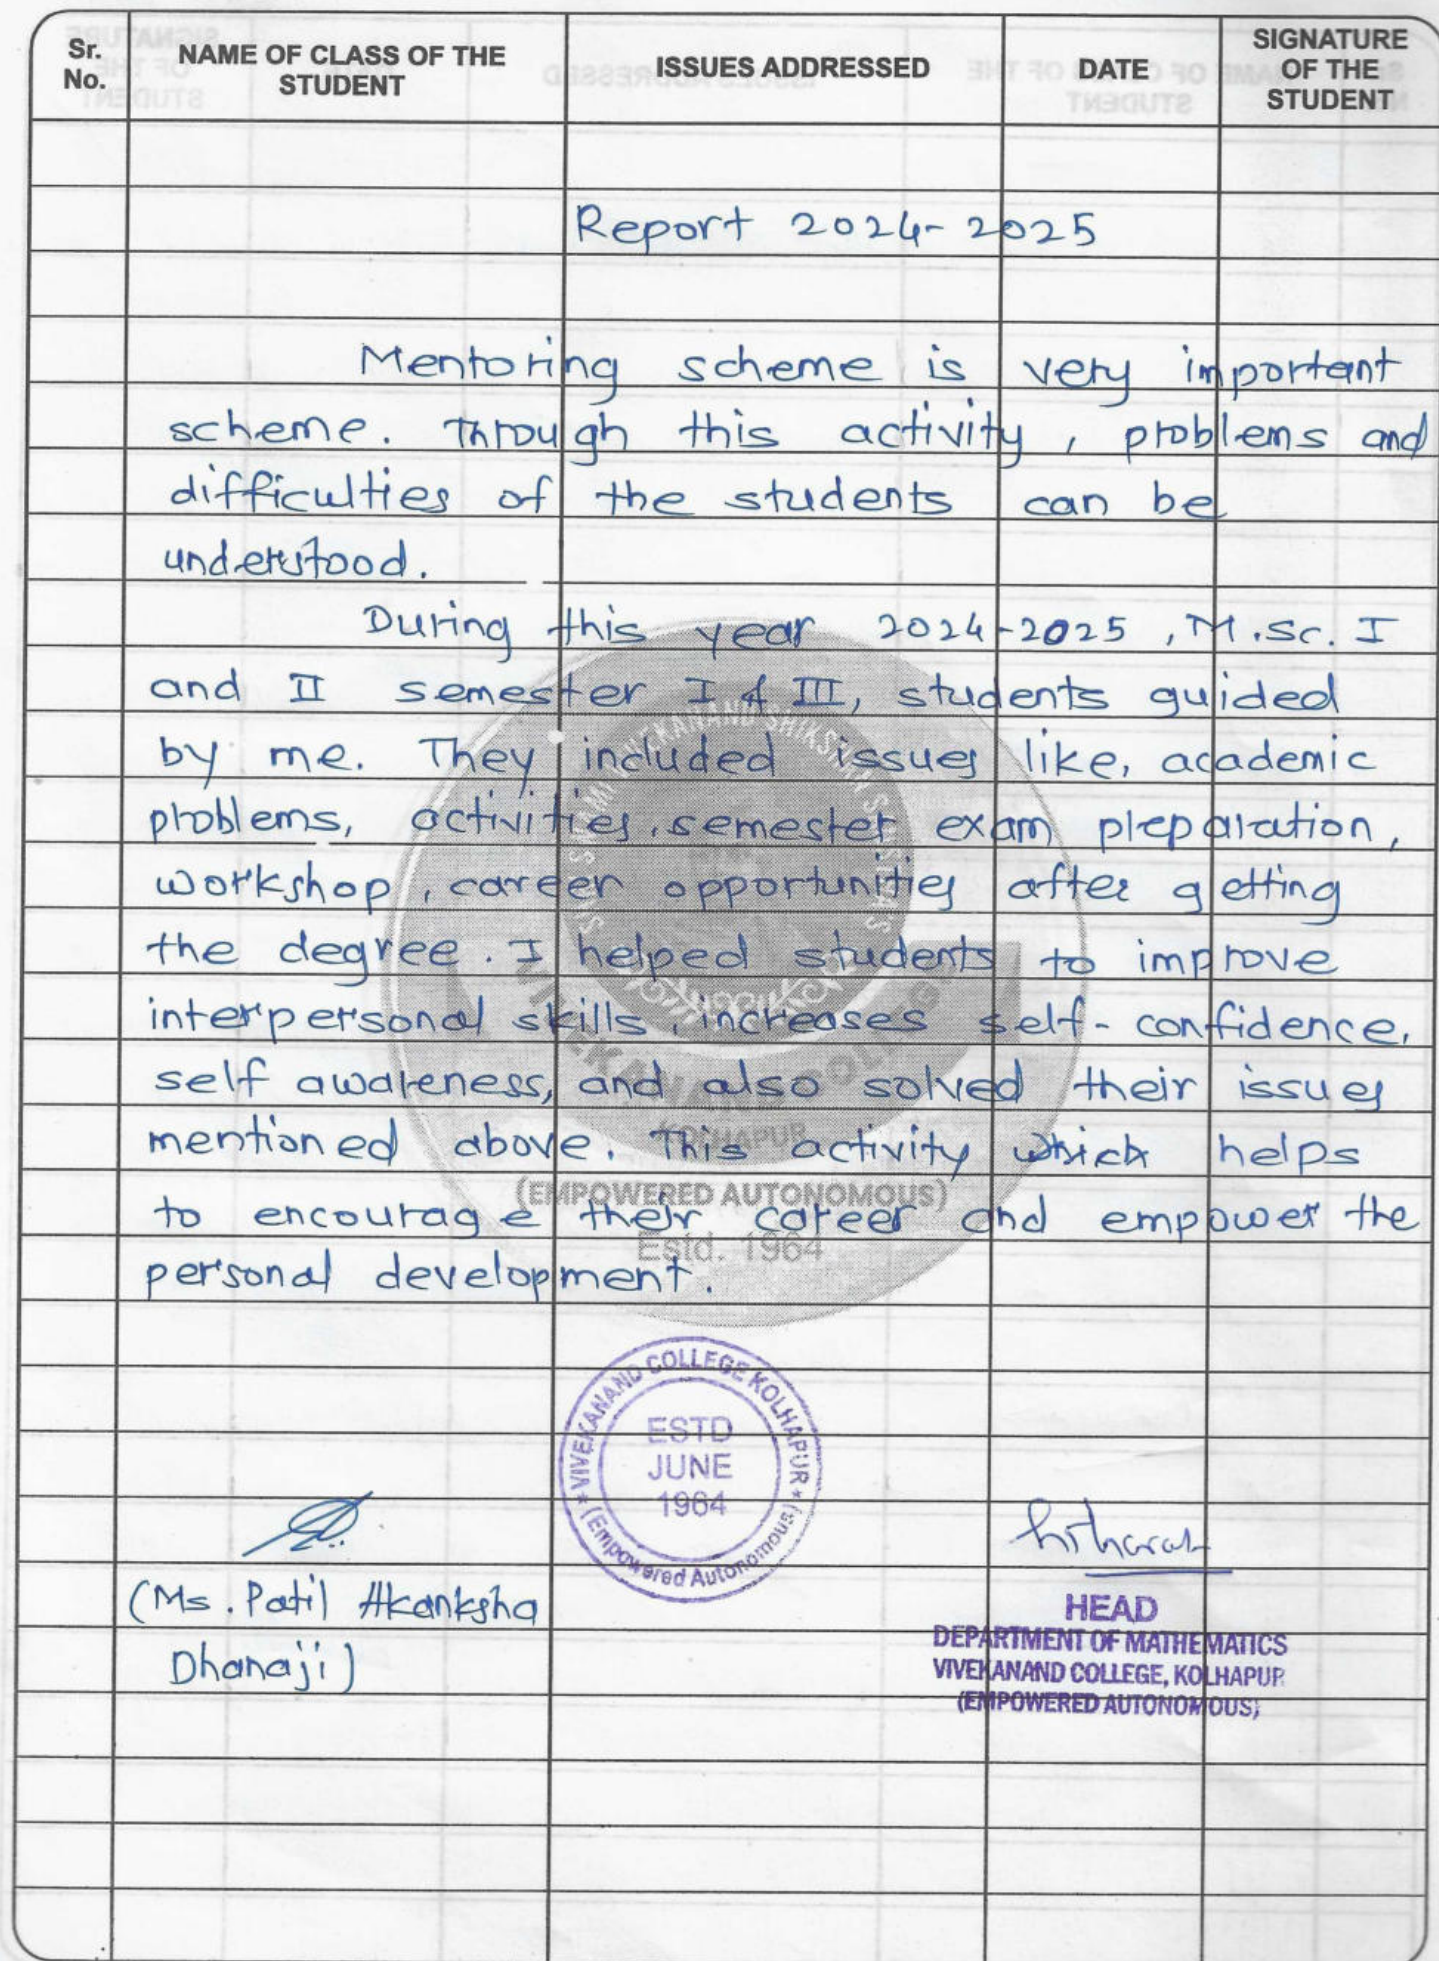 Sr. No.
NAME OF CLASS OF THE STUDENT
ISSUES ADDRESSED
DATE
SIGNATURE OF THE STUDENT
Report 2024-2025
Mentoring scheme is very important
scheme. Through this activity, problems and
difficulties of the students can be
understood.
During this year 2024-2025, M.Sc. I
and II semester I & III, students guided
by me. They included issues like, academic
problems, activities, semester exam preparation,
workshop, career opportunities after getting
the degree. I helped students to improve
interpersonal skills, increases self-confidence,
self awareness, and also solved their issues
mentioned above. This activity which helps
to encourage their career and empower the
personal development.
VIVEKANAND COLLEGE
KOLHAPUR
(EMPOWERED AUTONOMOUS)
Estd. 1964
VIVEKANAND COLLEGE KOLHAPUR
(Empowered Autonomous)
ESTD
JUNE
1964
(Ms. Patil Akanksha
Dhanaji)
HEAD
DEPARTMENT OF MATHEMATICS
VIVEKANAND COLLEGE, KOLHAPUR
(EMPOWERED AUTONOMOUS)